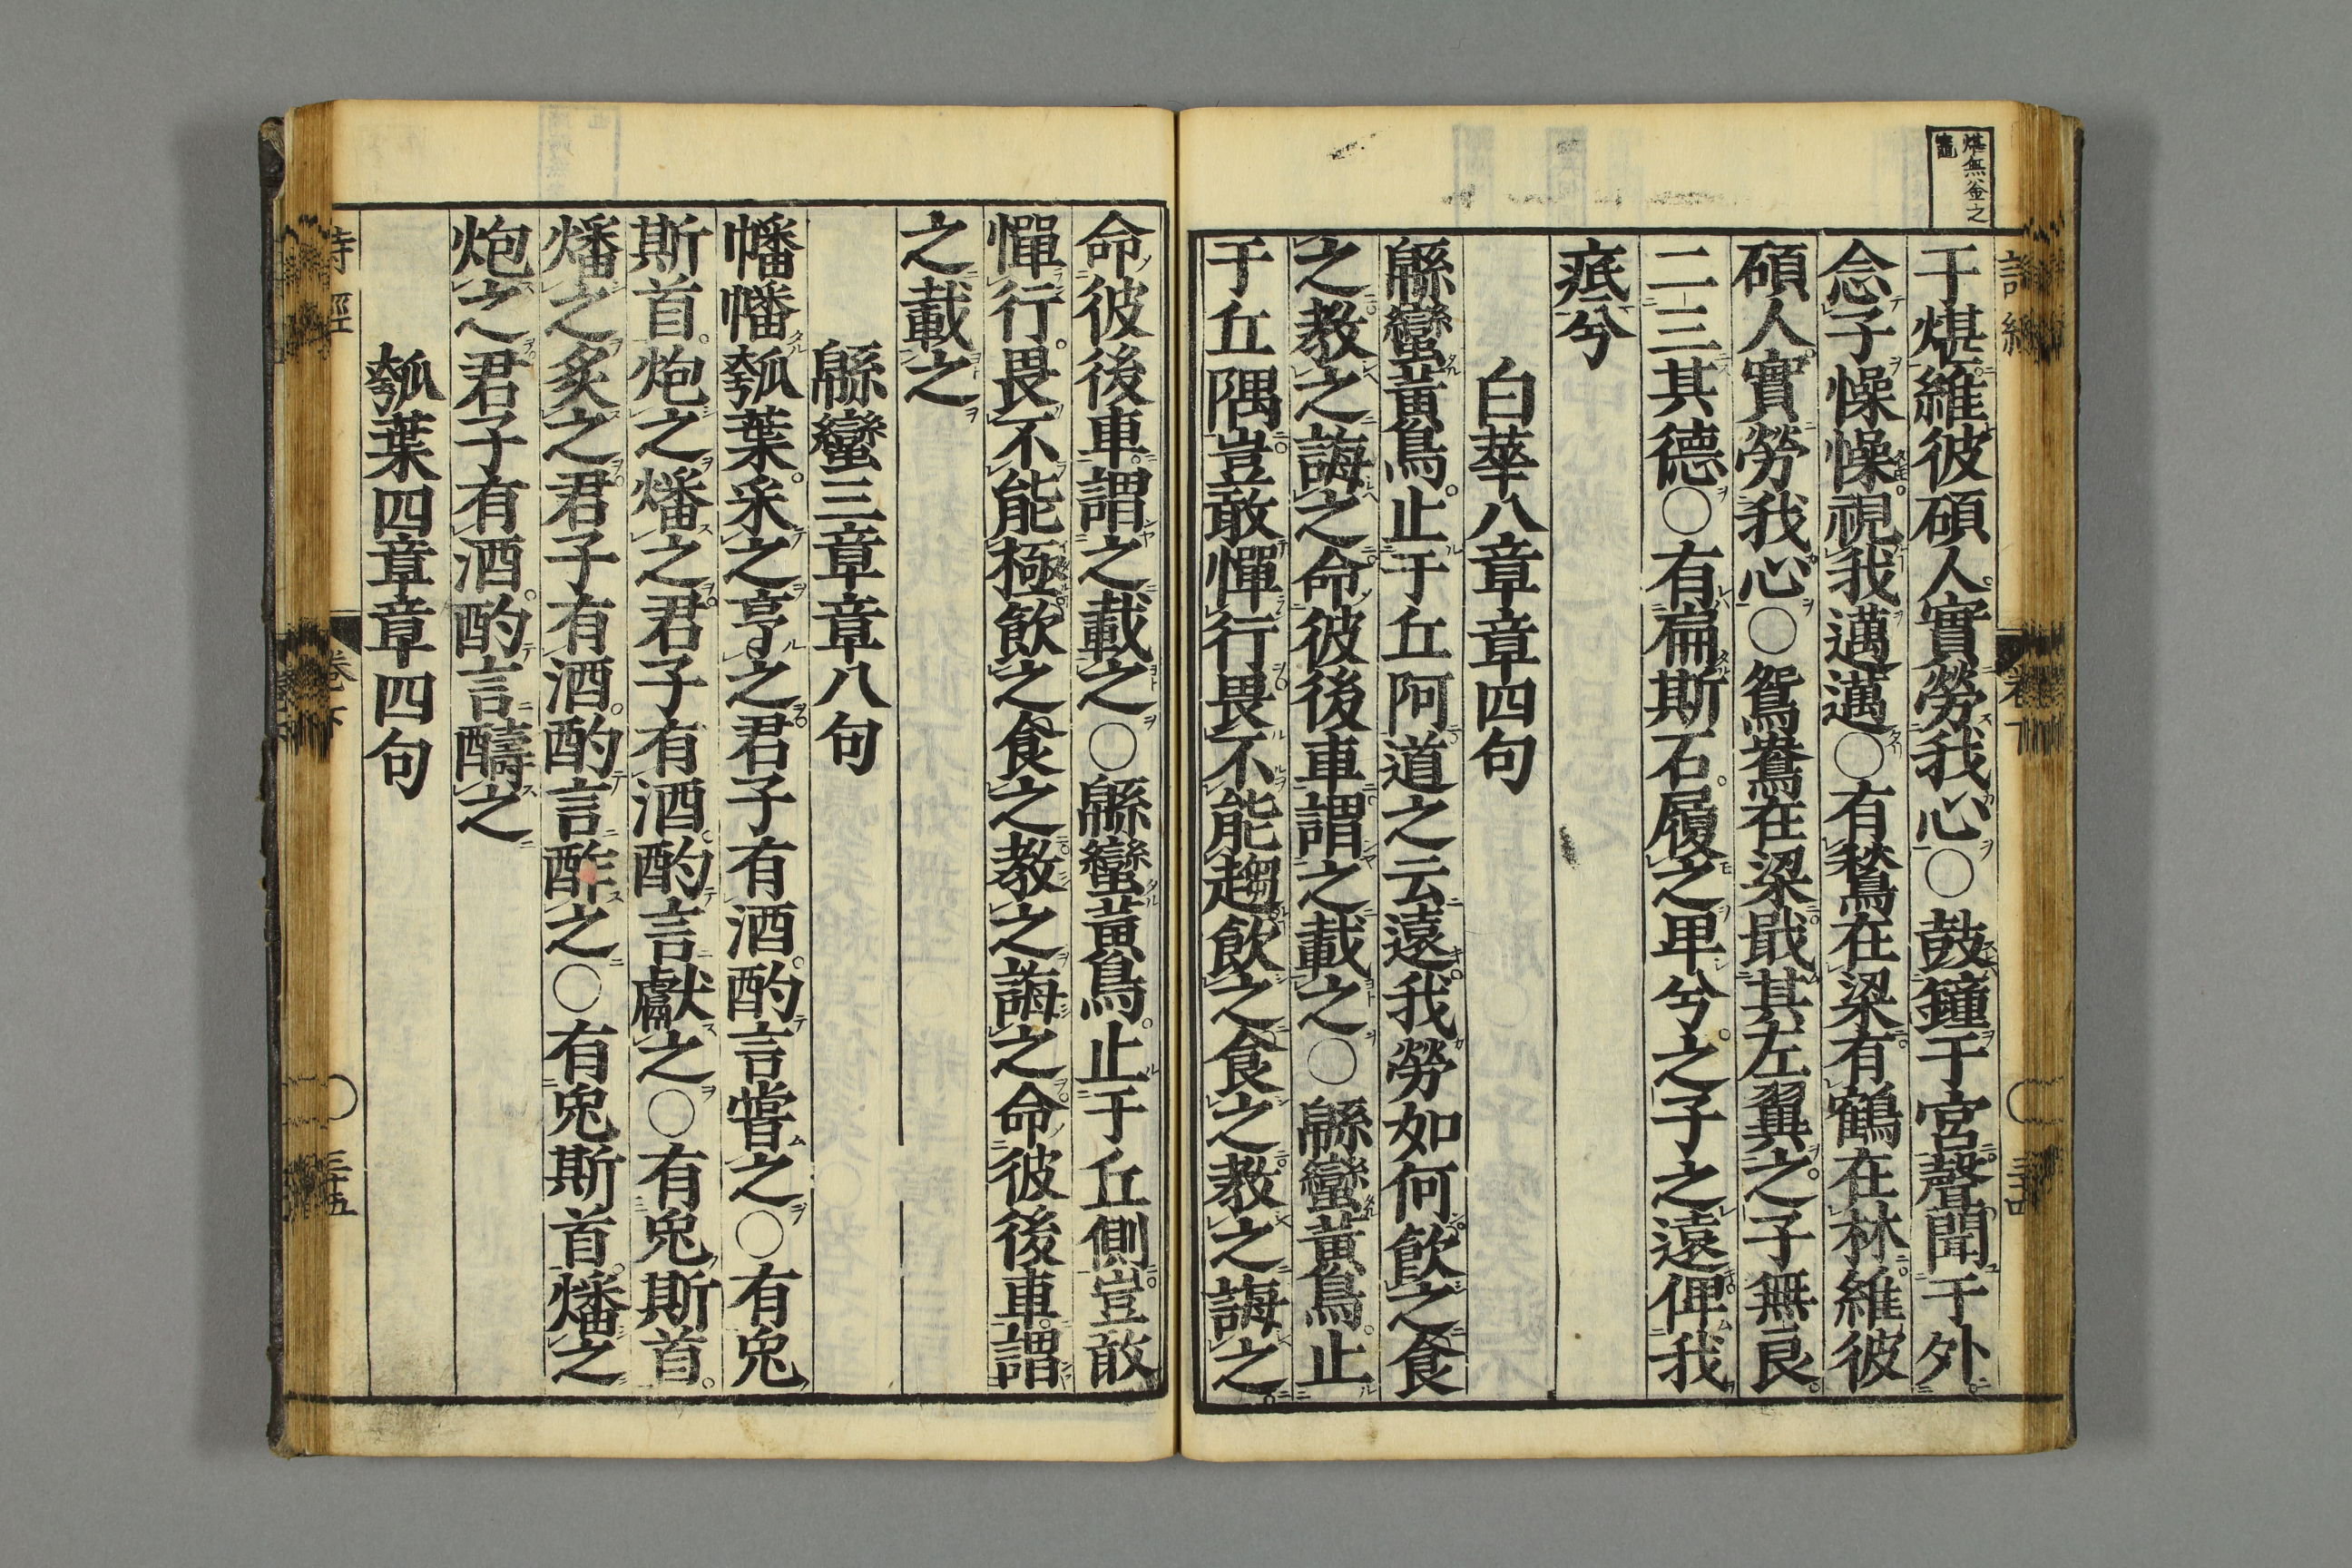 煁無釜之
竈
于煁維彼碩人實勞我心○鼓鐘于宮聲聞于外
念子懆懆視我邁邁○有鶖在梁有鶴在林維彼
碩人實勞我心○鴛鴦在梁戢其左翼之子無良
二三其德○有扁斯石履之卑兮之子之遠俾我
疷兮
白華八章章四句
緜蠻黃鳥止于丘阿道之云遠我勞如何飮之食
之敎之誨之命彼後車謂之載之○緜蠻黃鳥止
于丘隅豈敢憚行畏不能趨飮之食之敎之誨之
命彼後車謂之載之○緜蠻黃鳥止于丘側豈敢
憚行畏不能極飮之食之敎之誨之命彼後車謂
之載之
緜蠻三章章八句
幡幡瓠葉采之亨之君子有酒酌言嘗之○有兔
斯首炮之燔之君子有酒酌言獻之○有兔斯首
燔之炙之君子有酒酌言酢之○有兔斯首燔之
炮之君子有酒酌言醻之
瓠葉四章章四句
詩經
卷下
○
三十五